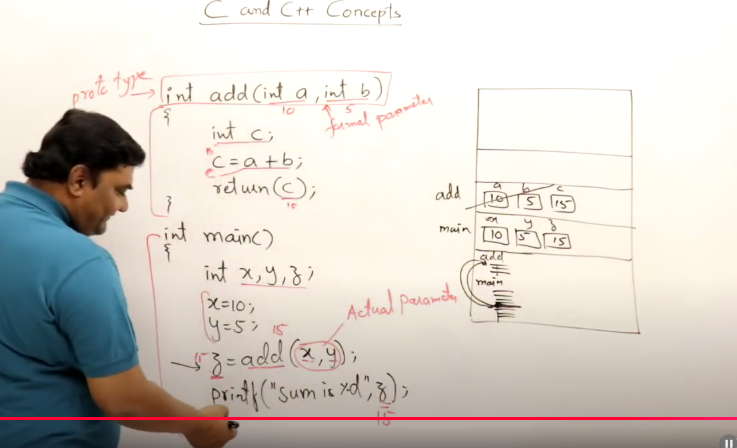 C and C++ Concepts
proto type
int add(int a, int b)
10 5
formal parameter
{
int c;
c=a+b;
return(c);
15
}
int main()
{
int x,y,z;
x=10;
y=5;
15
Actual Parameter
15 z=add(x,y);
printf("Sum is %d",z);
15
a b c
add 10 5 15
x y z
main 10 5 15
add
main